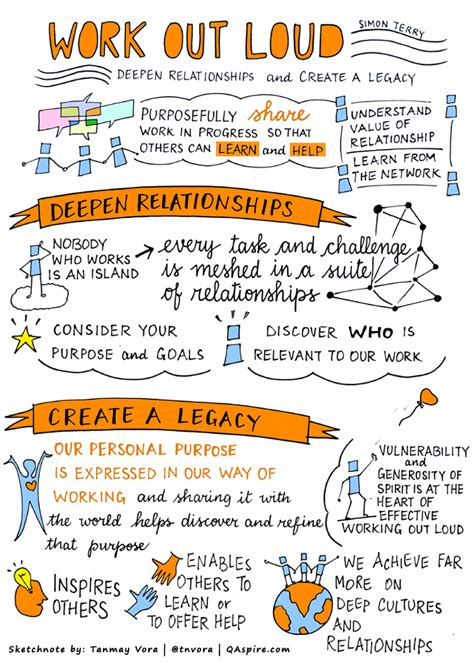 WORK OUT LOUD
SIMON TERRY
DEEPEN RELATIONSHIPS and CREATE A LEGACY
PURPOSEFULLY share
WORK IN PROGRESS SO THAT
OTHERS CAN LEARN and HELP
UNDERSTAND
VALUE OF
RELATIONSHIP
LEARN FROM
THE NETWORK
DEEPEN RELATIONSHIPS
NOBODY
WHO WORKS
IS AN ISLAND
every task and challenge
is meshed in a suite
of relationships
CONSIDER YOUR
PURPOSE and GOALS
DISCOVER WHO IS
RELEVANT TO OUR WORK
CREATE A LEGACY
OUR PERSONAL PURPOSE
IS EXPRESSED IN OUR WAY OF
WORKING and sharing it with
the world helps discover and refine
that purpose
VULNERABILITY
and
GENEROSITY OF
SPIRIT IS AT THE
HEART OF
EFFECTIVE
WORKING OUT LOUD
INSPIRES
OTHERS
ENABLES
OTHERS TO
LEARN or
TO OFFER HELP
WE ACHIEVE FAR
MORE ON
DEEP CULTURES
AND
RELATIONSHIPS
Sketchnote by: Tanmay Vora | @tnvora | QAspire.com